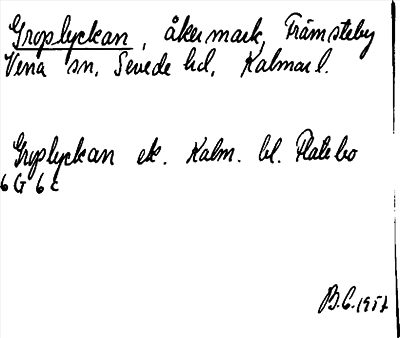 Groplyckan, åkermark, Främsteby
Vena sn, Sevede hd, Kalmar l.
Groplyckan ek. Kalm. bl. Flatebo
6 G 6 e
B.C. 1957